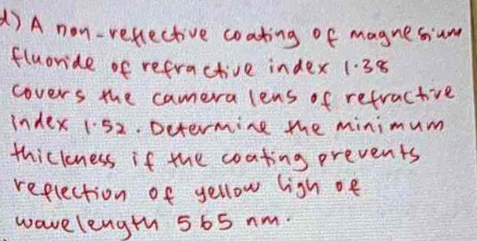 d) A non-reflective coating of magnesium
fluoride of refractive index 1.38
covers the camera lens of refractive
index 1.52. Determine the minimum
thickness if the coating prevents
reflection of yellow ligh of
wavelength 565 nm.